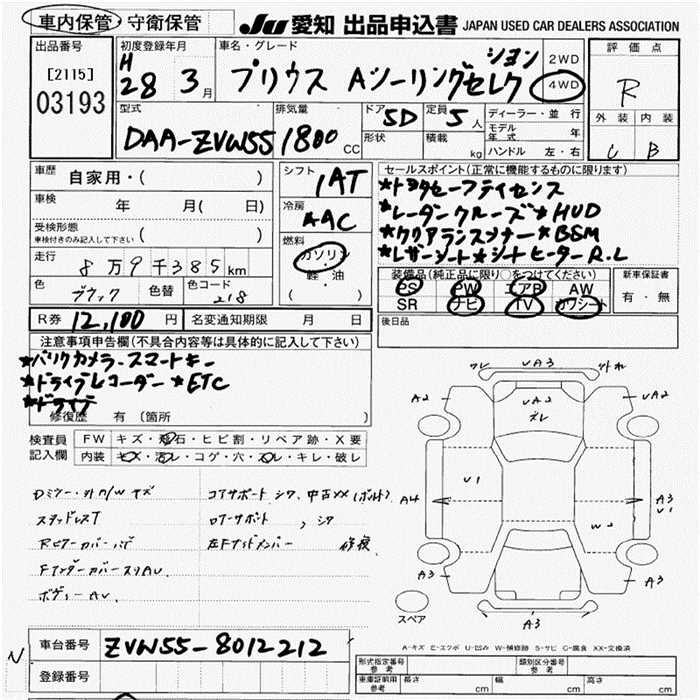 車内保管・守衛保管
JU 愛知 出品申込書 JAPAN USED CAR DEALERS ASSOCIATION
出品番号
[2115]
03193
初度登録年月
H
28 3月
車名・グレード
プリウス Aツーリングセレク
ション
2WD
4WD
評価点
R
外装 内装
C B
型式
DAA-ZVW55
排気量
1800 CC
ドア
5D
形状
定員
5人
積載
kg
ディーラー・並行
モデル年式 年
ハンドル 左・右
車歴
自家用・( )
車検
年 月( 日)
受検形態
車検付きのみ記入して下さい ( )
走行
8万9千385km
色
ブラック
色替
色コード
218
シフト
1AT
冷房
AAC
燃料
ガソリン
軽・油
( )
セールスポイント(正常に機能するものに限ります)
★トヨタセーフティセンス
★レーダークルーズ★HUD
★クリアランスソナー★BSM
★レザーシート★シートヒーターR.L
装備品(純正品に限り○をつけてください)
PS PW エアB AW
SR ナビ TV カワシート
新車保証書
有・無
後日品
R券 12,100円
名変通知期限 月 日
注意事項申告欄(不具合内容等は具体的に記入して下さい)
★バックカメラ.スマートキー
★ドライブレコーダー★ETC
修復歴 有(箇所 )
検査員
記入欄
FW キズ・飛石・ヒビ割・リペア跡・X要
内装 キズ・汚レ・コゲ・穴・スレ・キレ・破レ
スタッドレスT
コアサポート シワ、中古XX(ボルト)
ロアーサポート 、シワ
修復
ボディーAU
A2
UA3
外れ
UA2
UA2
ズレ
U1
A4
A3
U1
W2
A3
A3
A3
スペア
A-キズ E-エクボ U-凹み W-補修跡 S-サビ C-腐食 XX-交換済
N
車台番号 ZVW55-8012212
登録番号
形式指定番号
参考
類別区分番号
参考
車庫証明用
参考
長さ cm 幅 cm 高さ cm